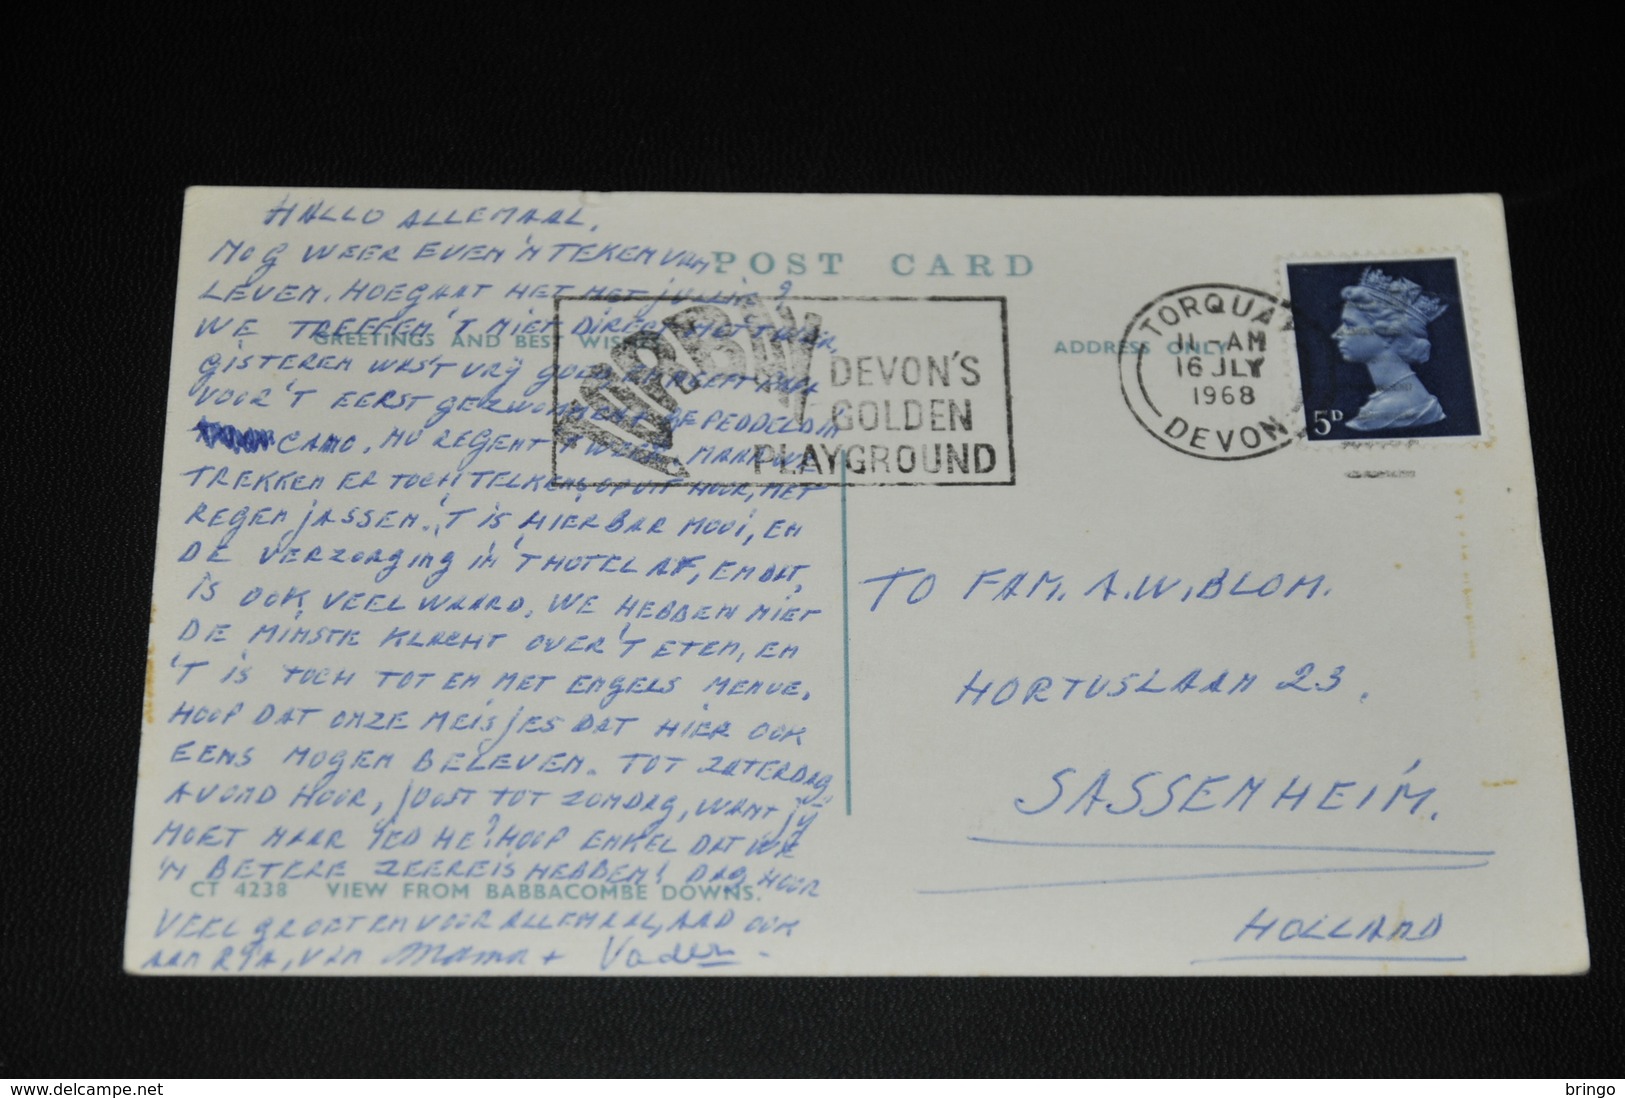 HALLO ALLEMAAL,
MOG WEER EVEN 'N TEKEN VAN
LEVEN. HOE GAAT HET MET JULLIE?
WE TREFFEN 'T NIET DIRECT
GISTEREN WAS'T VRY GOED
VOOR'T EERST GEZWOMMEN + GEPEDDELD IN
CANO. NU REGENT
TREKKEN ER TOCH TELKENS OP UIT HOOR, MET
REGENJASSEN. 'T IS HIER BAR MOOI, EN
DE VERZORGING IN 'T HOTEL AF, EN DAT
IS OOK VEEL WAARD, WE HEBBEN NIET
DE MINSTE KLACHT OVER 'T ETEN, EN
'T IS TOCH TOT EN MET ENGELS MENUE.
HOOP DAT ONZE MEISJES DAT HIER OOK
EENS MOGEN BELEVEN. TOT ZATERDAG
AVOND HOOR, JOOST TOT ZONDAG, WANT JY
MOET NAAR HE? HOOP ENKEL DAT WE
'N BETERE ZEEREIS HEBBEN! DAG HOOR
VEEL GROETEN VOOR ALLEMAAL, AAD OOK
AAN RIA, VAN Mama + Vader.
POST CARD
GREETINGS AND BEST WIS
ADDRESS ONLY
TORBAY
DEVON'S
GOLDEN
PLAYGROUND
TORQUAY
11-AM
16 JLY
1968
DEVON
5D
TO FAM. A.W. BLOM.
HORTUSLAAN 23.
SASSENHEIM.
HOLLAND
CT 4238 VIEW FROM BABBACOMBE DOWNS.
www.delcampe.net
bringo